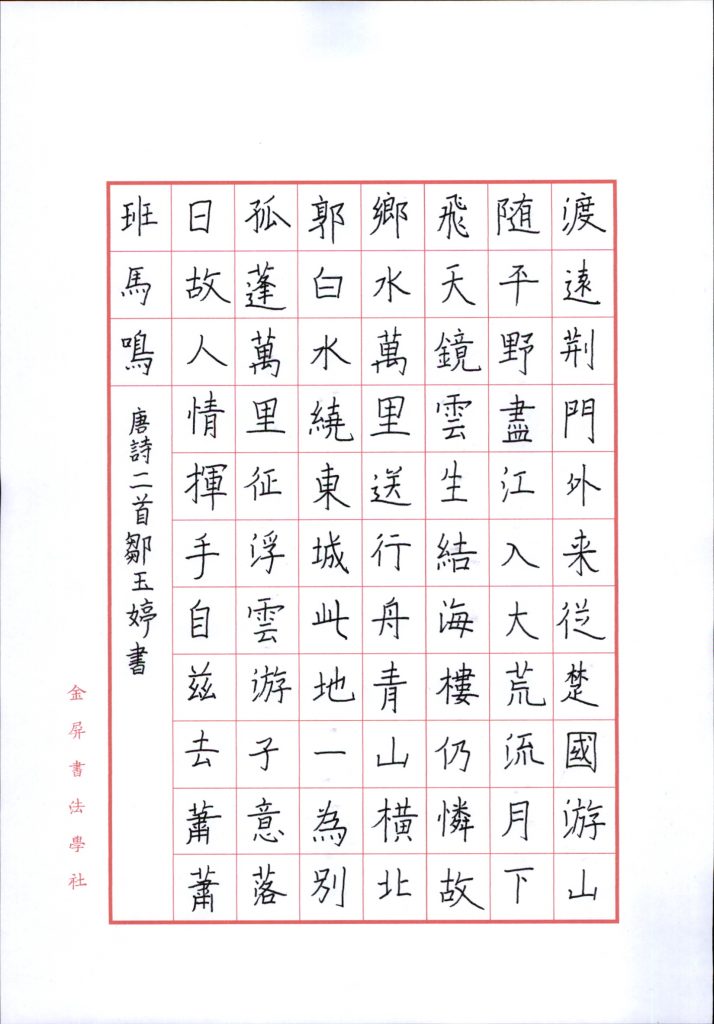 渡遠荆門外来從楚國游山
随平野盡江入大荒流月下
飛天鏡雲生結海樓仍憐故
鄉水萬里送行舟青山橫北
郭白水繞東城此地一為別
孤蓬萬里征浮雲游子意落
日故人情揮手自茲去蕭蕭
班馬鳴
唐詩二首鄒玉婷書
金屏書法學社